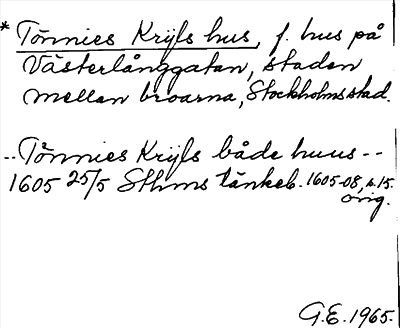 * Tönnies Krijls hus, f. hus på
Västerlånggatan, staden
mellan broarna, Stockholms stad.
-- Tönnies Krijls både huus --
1605 25/5 Sthms tänkeb. 1605-08, s. 15.
orig.
G.E. 1965.